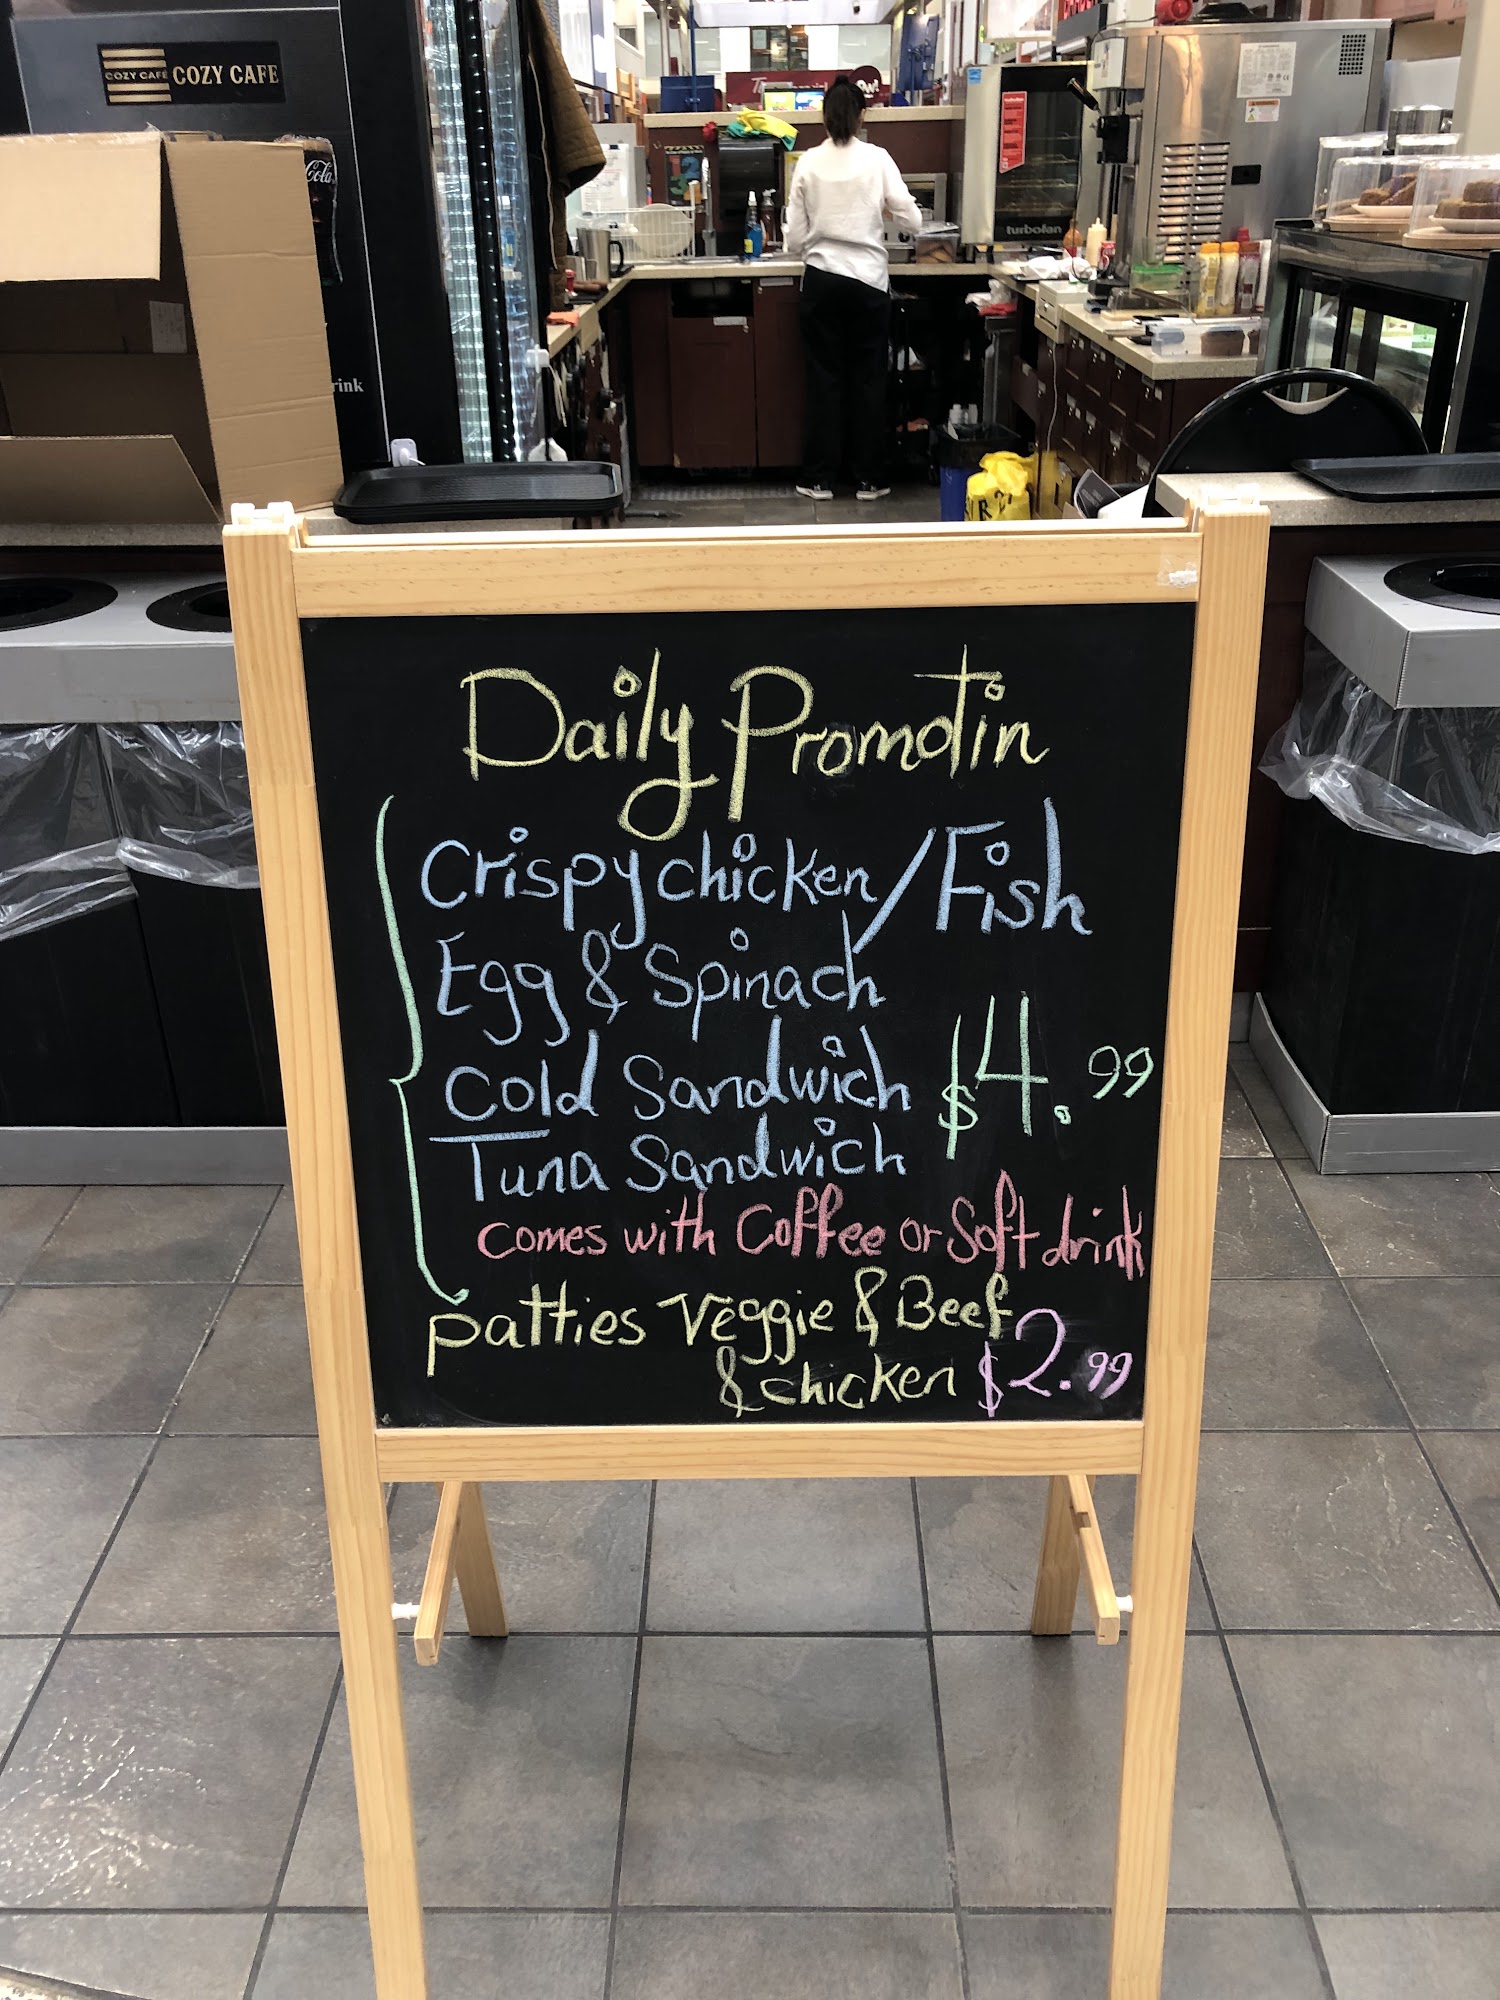 COZY CAFE COZY CAFE
Cola
rink
turbofan
Daily Promotin
Crispy chicken / Fish
Egg & Spinach
Cold Sandwich $4.99
Tuna Sandwich
comes with Coffee or Soft drink
patties Veggie & Beef
& chicken $2.99